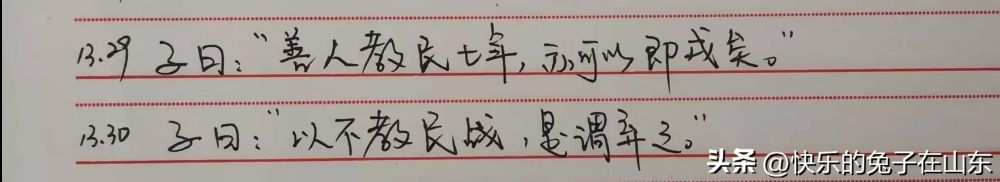 13.29 子曰：“善人教民七年，亦可以即戎矣。”
13.30 子曰：“以不教民战，是谓弃之。”
头条 @快乐的兔子在山东